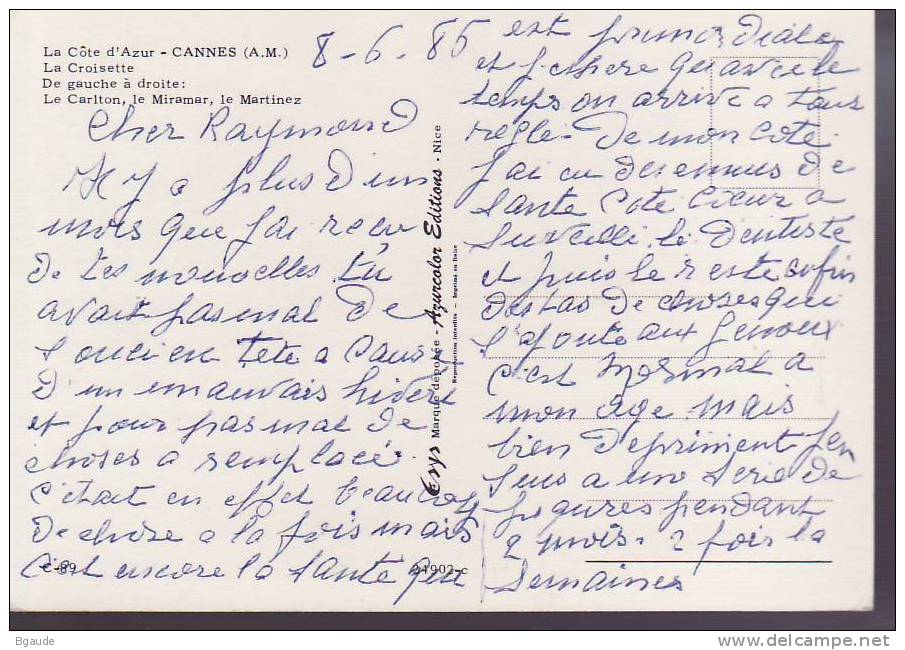 La Côte d'Azur - CANNES (A.M.)
La Croisette
De gauche à droite:
Le Carlton, le Miramar, le Martinez
8-6-85
Cher Raymond
Il y a plus d'un
mois que j'ai recu
de tes nouvelles tu
avait pas mal de
souci en tete a caus
d'un mauvais hivert
et pour pas mal de
choses a remplacé.
c'etait en effet beaucoup
de chose a la fois mais
c'est encore la sante qui
C-89
91902-c
est primordiale
et j'espere qu'avec le
temps on arrive a tous
reglé. De mon coté
j'ai eu des ennuis de
sante cote coeur a
surveillé, le dentiste
et puis le reste enfin
des tas de choses qui
s'ajoute aux genoux
c'est normal a
mon age mais
bien depriment j'en
suis a une serie de
piqures pendant
2 mois. 2 fois la
semaines
Erys Marque déposée - Azurcolor Editions - Nice
Reproduction interdite - Imprimé en Italie
Bgaude
www.delcampe.net